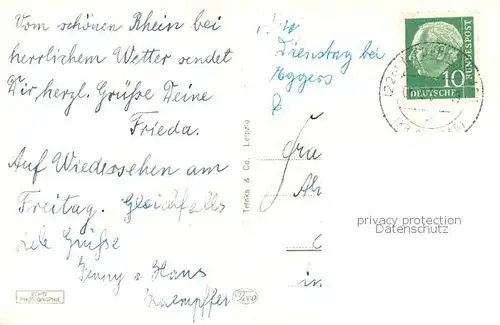 Vom schönen Rhein bei
herrlichem Wetter sendet
Dir herzl. Grüße Deine
Frieda.
Auf Wiedersehen am
Freitag. Gleichfalls
viele Grüße
Jenny u Hans
Kaempffer
ECHTE
PHOTOGRAPHIE
Trinks & Co. Leipzig
Trico
Dienstag bei
Eggers
10
DEUTSCHE
BUNDESPOST
privacy protection
Datenschutz